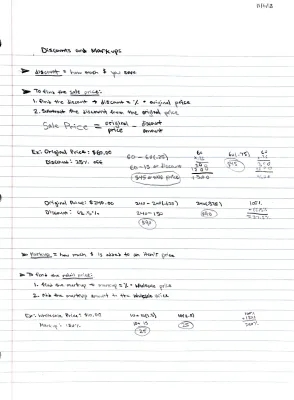 Discounts and Markups
➤ discount = how much $ you save
➤ To find the sale price:
1. Find the discount → discount = % · original price
2. Subtract the discount from the original price
Sale Price = original price - discount amount
Ex: Original Price: $60.00
Discount: 25% off
60 - 60(.25)
60 - 15
$45
60(.75)
$45
Original Price: $240.00
Discount:
240 - 150
$90
$90
100%
➤ Markup = how much $ is added to an item's price
➤ To find the retail price:
1. Find the markup → markup = % · wholesale price
2. Add the markup amount to the wholesale price
Ex: Wholesale Price: $10.00
Markup: 150%
10 + 10(1.5)
10 + 15
25
10(2.5)
25
100%